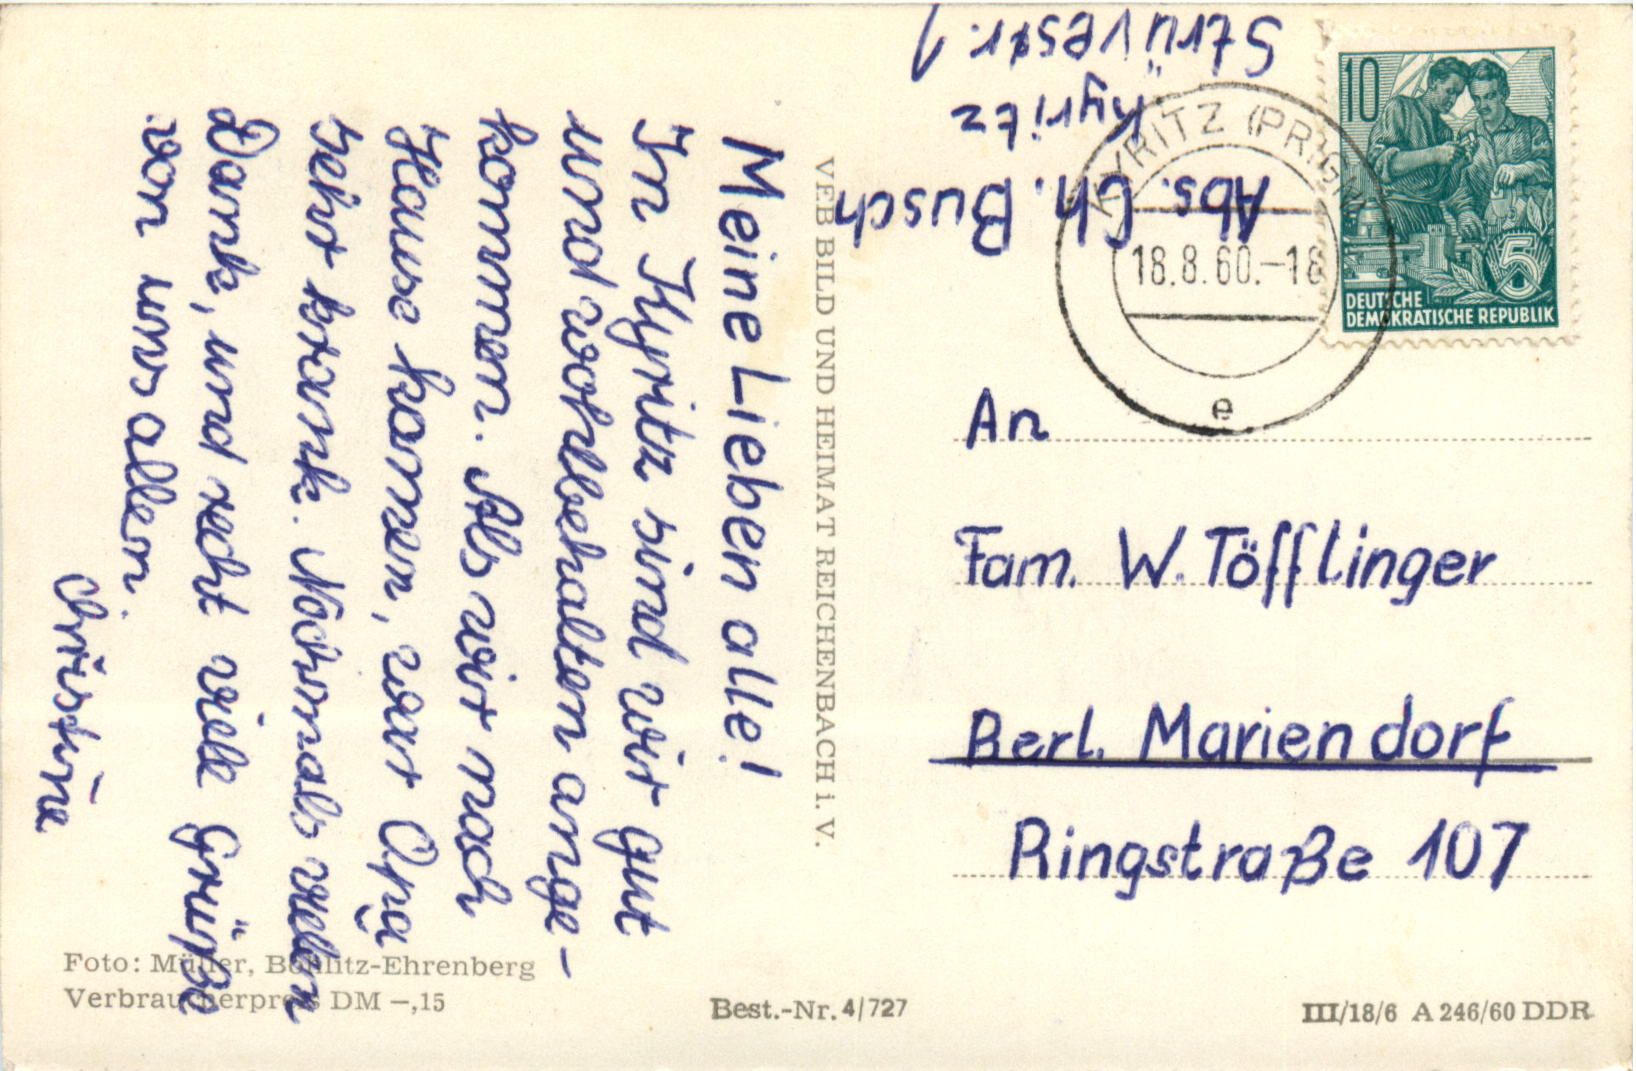 Meine Lieben alle!
In Kyritz sind wir gut
und wohlbehalten ange-
kommen. Als wir nach
Hause kamen, war Opa
sehr krank. Nochmals vielen
Dank, und recht viele Grüße
von uns allen.
Christine
Abs. Ch. Busch
Kyritz
Strüvestr. 1
VEB BILD UND HEIMAT REICHENBACH i. V.
KYRITZ (PRIGN
18.8.60.-18
e
10
5
DEUTSCHE
DEMOKRATISCHE REPUBLIK
An
Fam. W. Töfflinger
Berl. Mariendorf
Ringstraße 107
Foto: Müller, Böhlitz-Ehrenberg
Verbraucherpreis DM -,15
Best.-Nr. 4/727
III/18/6 A 246/60 DDR